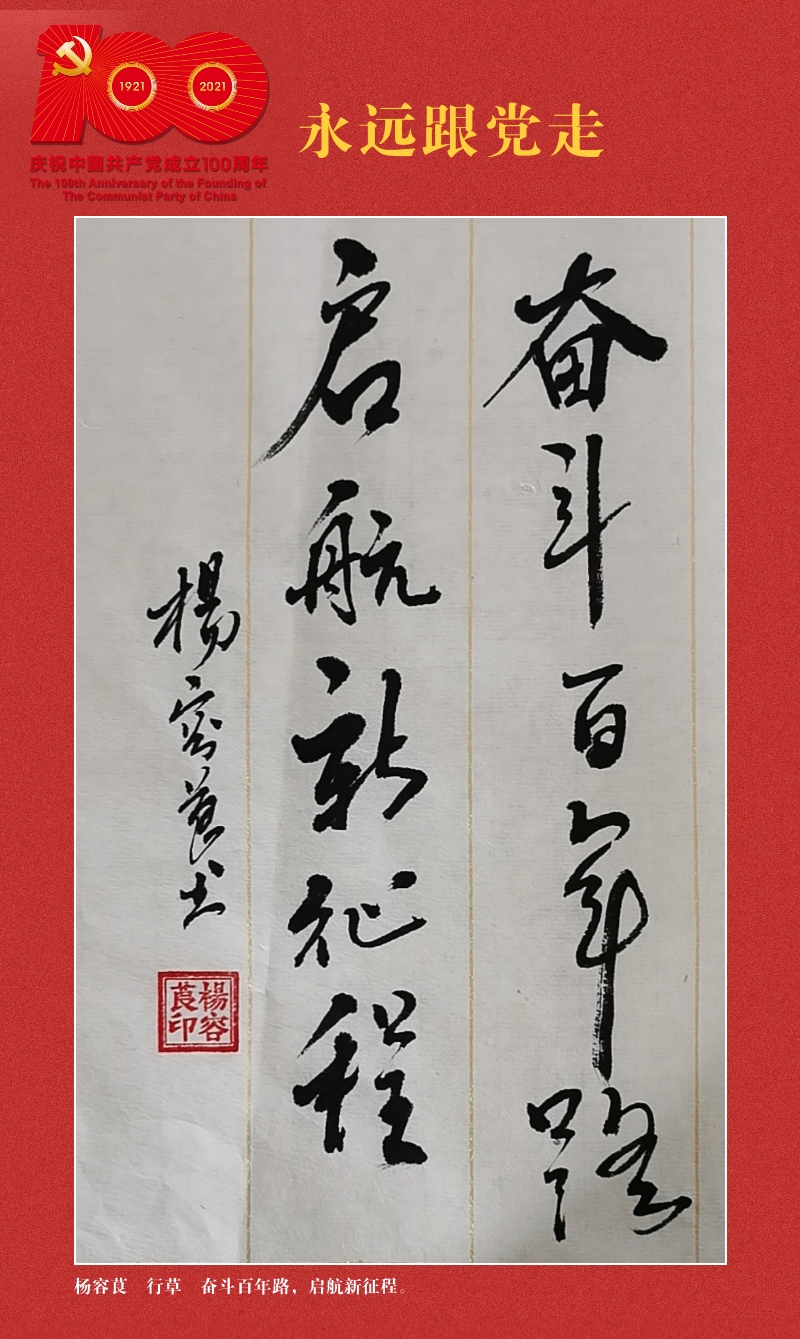 1921
2021
庆祝中国共产党成立100周年
The 100th Anniversary of the Founding of
The Communist Party of China
永远跟党走
奋斗百年路
启航新征程
楊容莨书
楊容
莨印
杨容莨 行草 奋斗百年路，启航新征程。